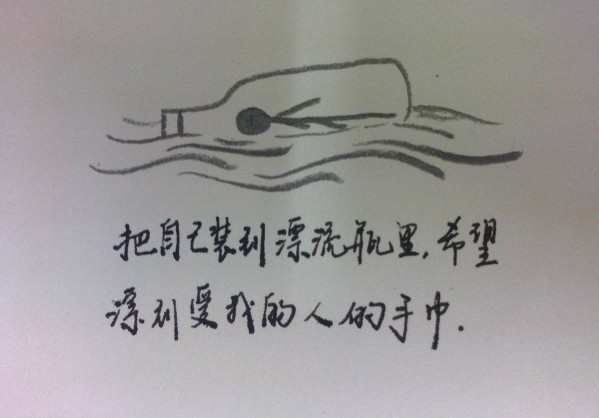 把自己装到漂流瓶里,希望
漂到爱我的人的手中.